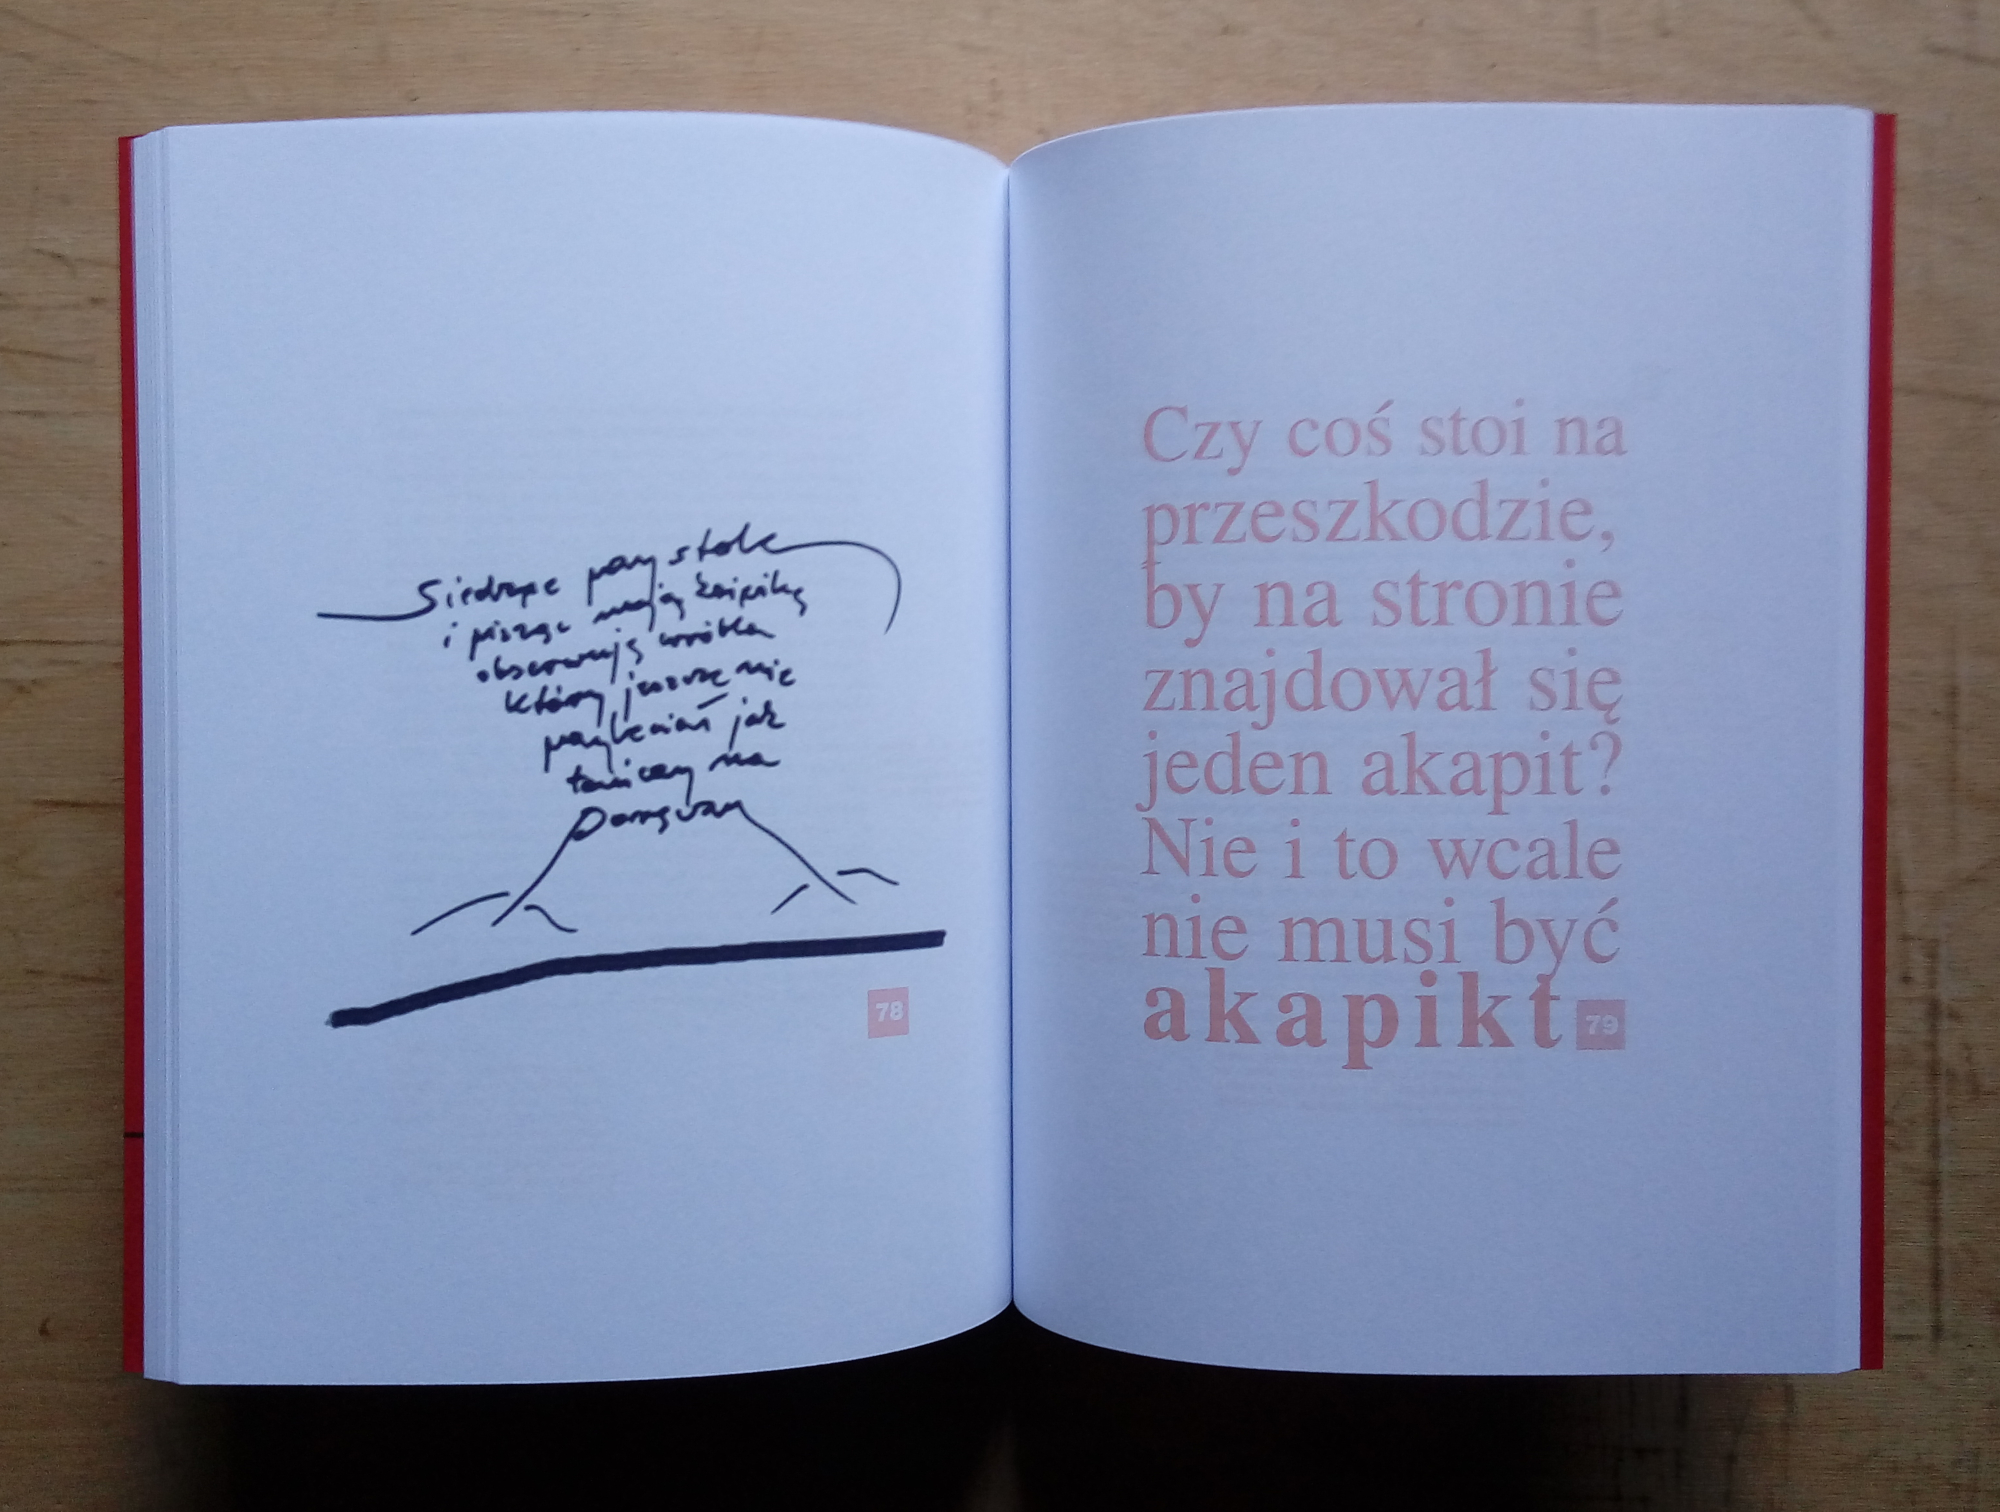 Siedzę przy stole
i piszę moją książkę
obserwuję wróbla
który jeszcze nie
przyleciał jak
tańczy na
78
Czy coś stoi na
przeszkodzie,
by na stronie
znajdował się
jeden akapit?
Nie i to wcale
nie musi być
akapikt
79